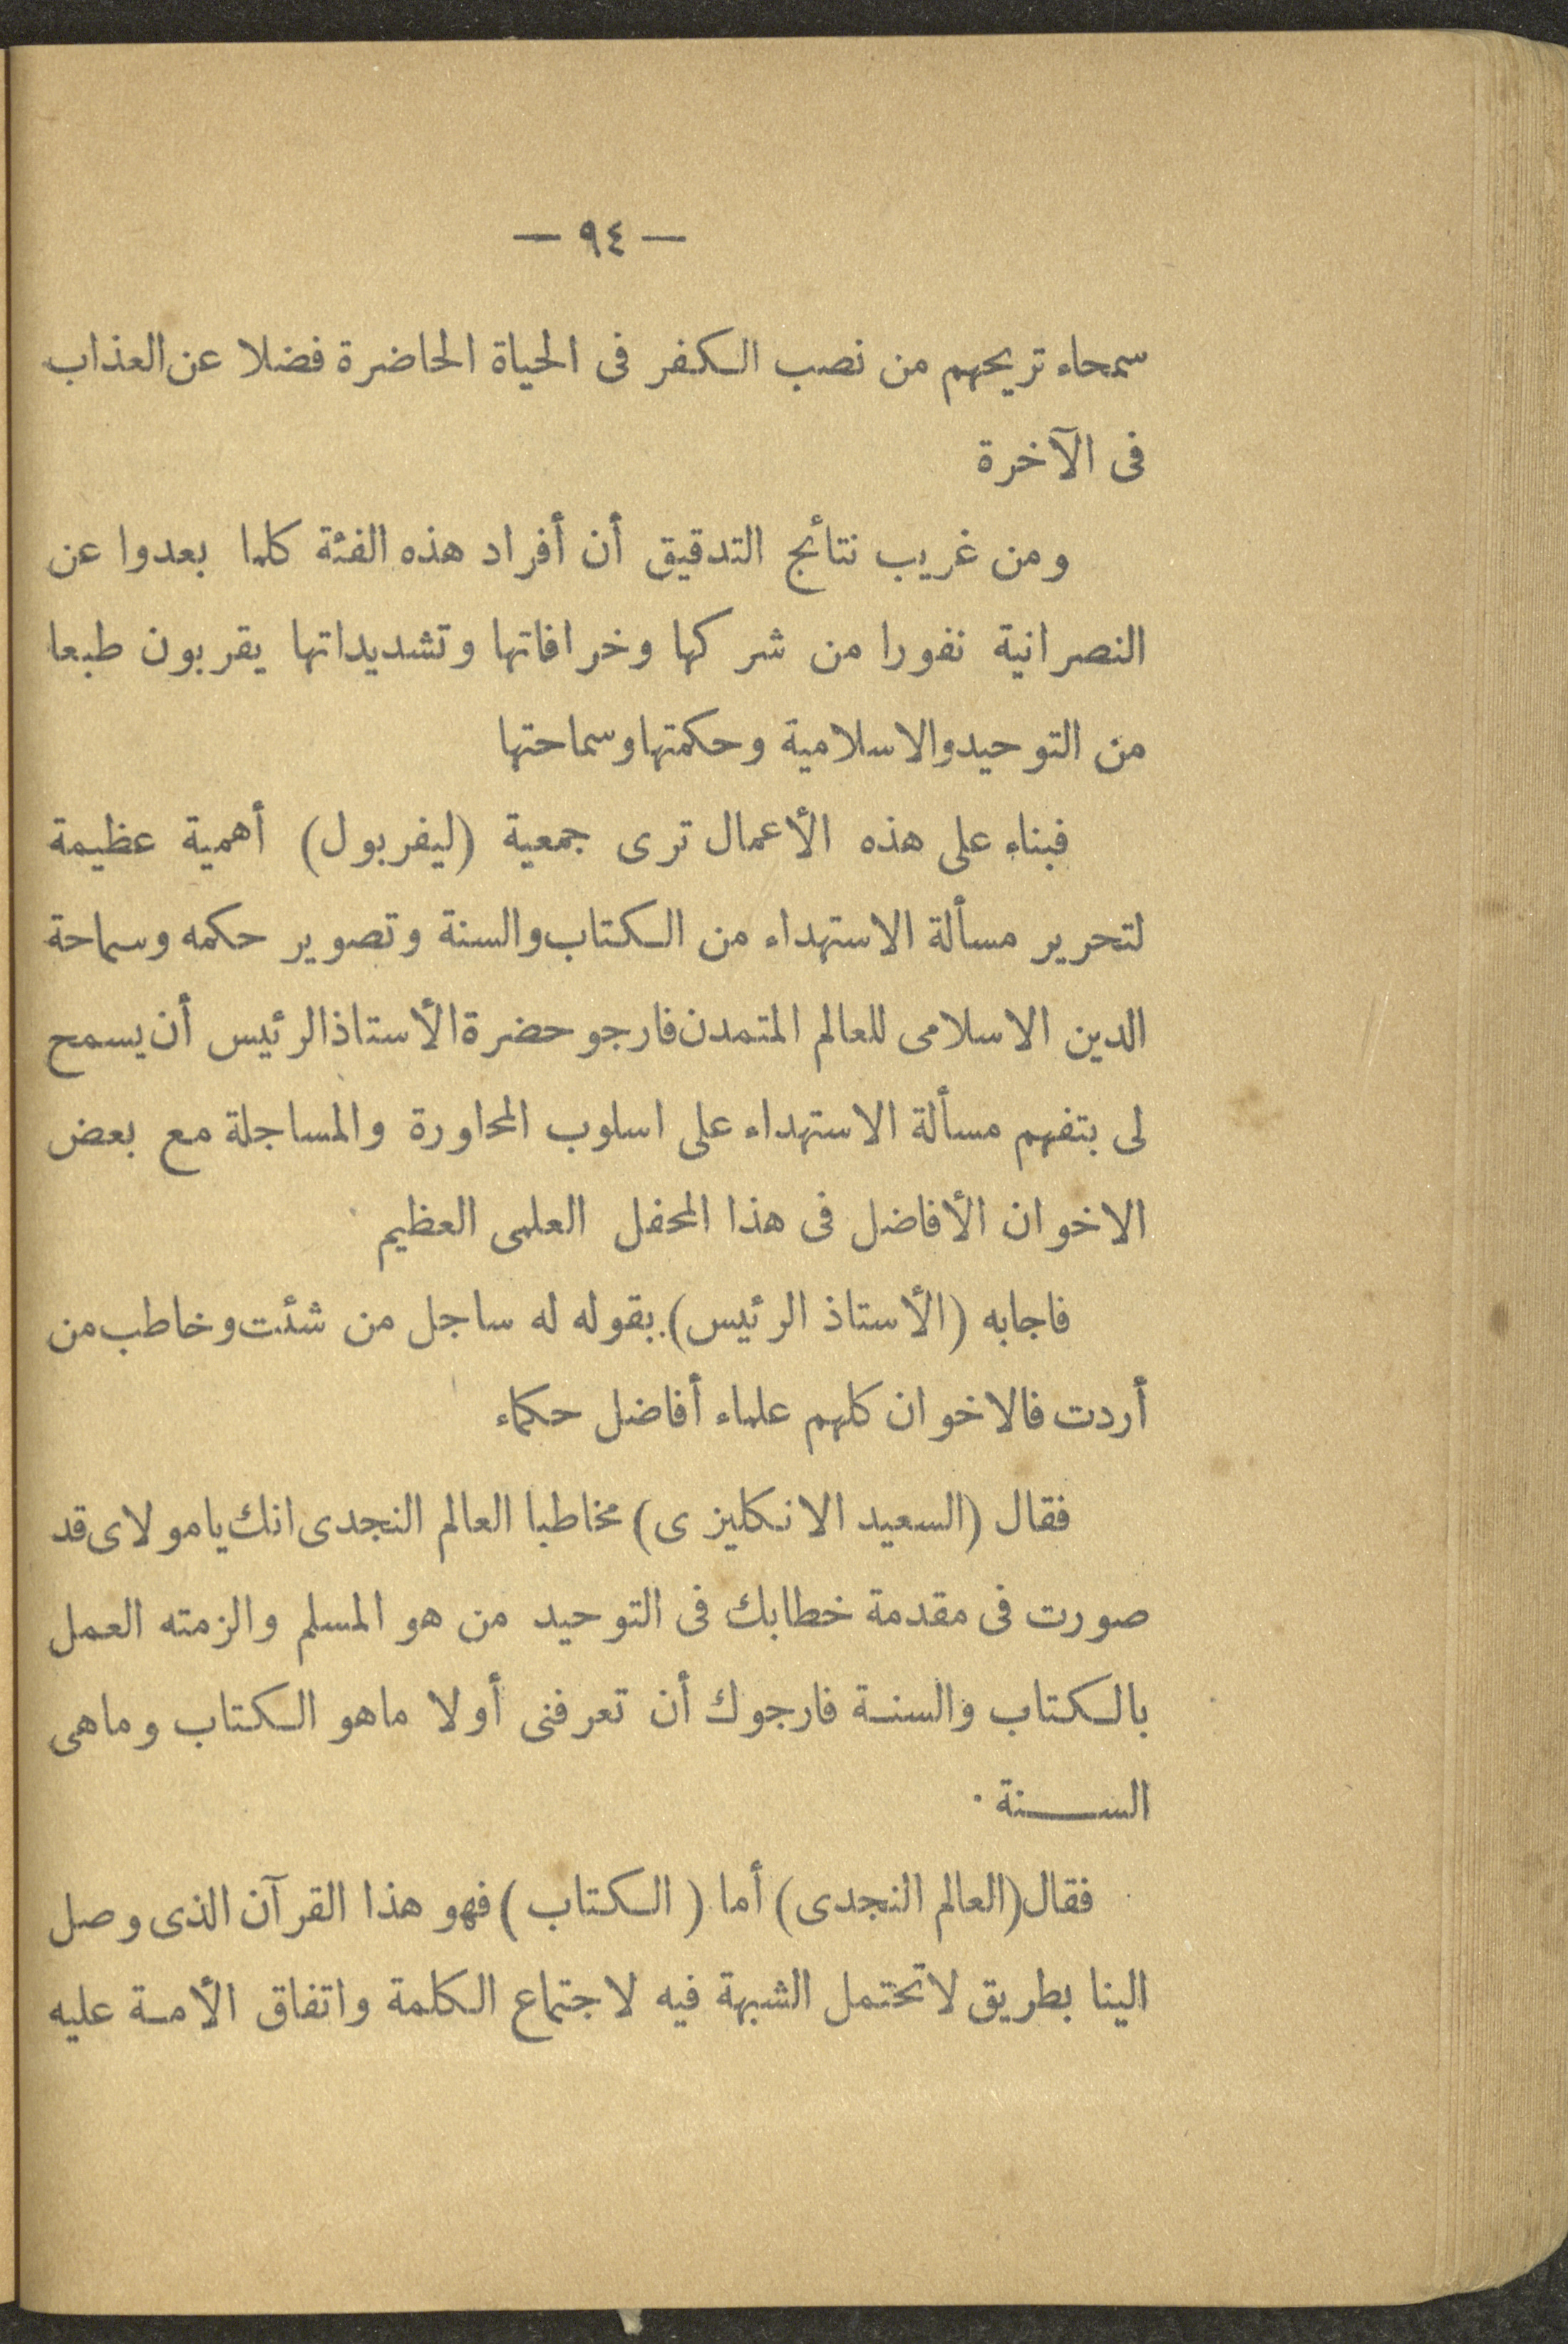 — ٩٤ —
سمحاء تريحهم من نصب الكفر فى الحياة الحاضرة فضلا عن العذاب
فى الآخرة
ومن غريب نتائج التدقيق أن أفراد هذه الفئة كلما بعدوا عن
النصرانية نفورا من شركها وخرافاتها وتشديداتها يقربون طبعا
من التوحيد والاسلامية وحكمتها وسماحتها
فبناء على هذه الأعمال ترى جمعية (ليفربول) أهمية عظيمة
لتحرير مسألة الاستهداء من الكتاب والسنة وتصوير حكمه وسماحة
الدين الاسلامى للعالم المتمدن فارجو حضرة الأستاذ الرئيس أن يسمح
لى بتفهم مسألة الاستهداء على اسلوب المحاورة والمساجلة مع بعض
الاخوان الأفاضل فى هذا المحفل العلمى العظيم
فاجابه (الأستاذ الرئيس) بقوله له ساجل من شئت وخاطب من
أردت فالاخوان كلهم علماء أفاضل حكماء
فقال (السعيد الانكليزى) مخاطبا العالم النجدى انك يامولاى قد
صورت فى مقدمة خطابك فى التوحيد من هو المسلم والزمته العمل
بالكتاب والسنة فارجوك أن تعرفنى أولا ماهو الكتاب وماهى
السنة .
فقال (العالم النجدى) أما (الكتاب) فهو هذا القرآن الذى وصل
الينا بطريق لاتحتمل الشبهة فيه لاجتماع الكلمة واتفاق الأمة عليه